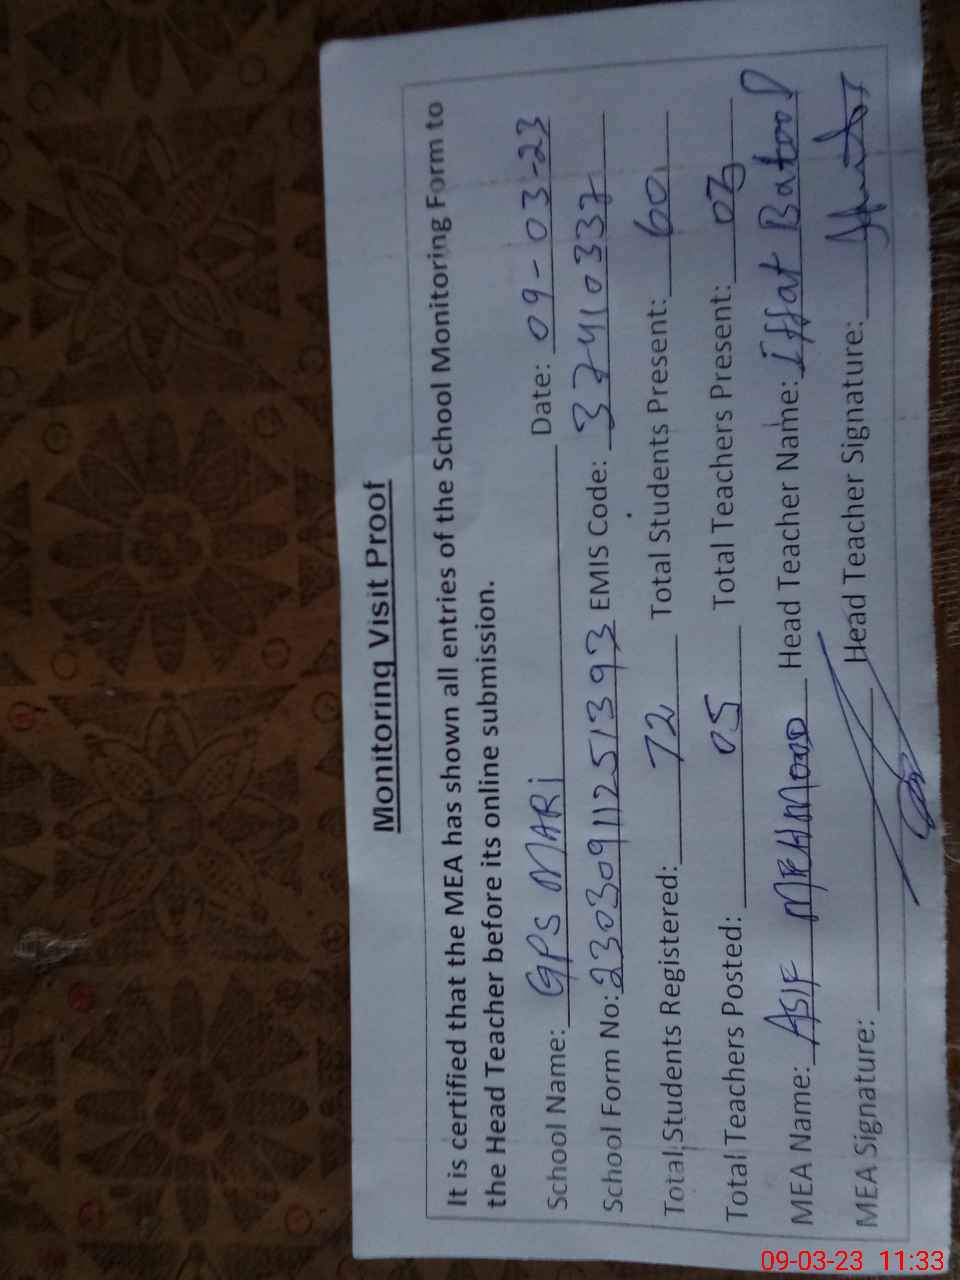 Monitoring Visit Proof
It is certified that the MEA has shown all entries of the School Monitoring Form to
the Head Teacher before its online submission.
School Name: GPS MARI Date: 09-03-23
School Form No: 2303091125 51393 EMIS Code: 37410337
Total Students Registered: 72 Total Students Present: 60
Total Teachers Posted: 05 Total Teachers Present:
MEA Name: ASIF MEHMOOD Head Teacher Name: Iffat Batool
MEA Signature: Head Teacher Signature:
09-03-23 11:33